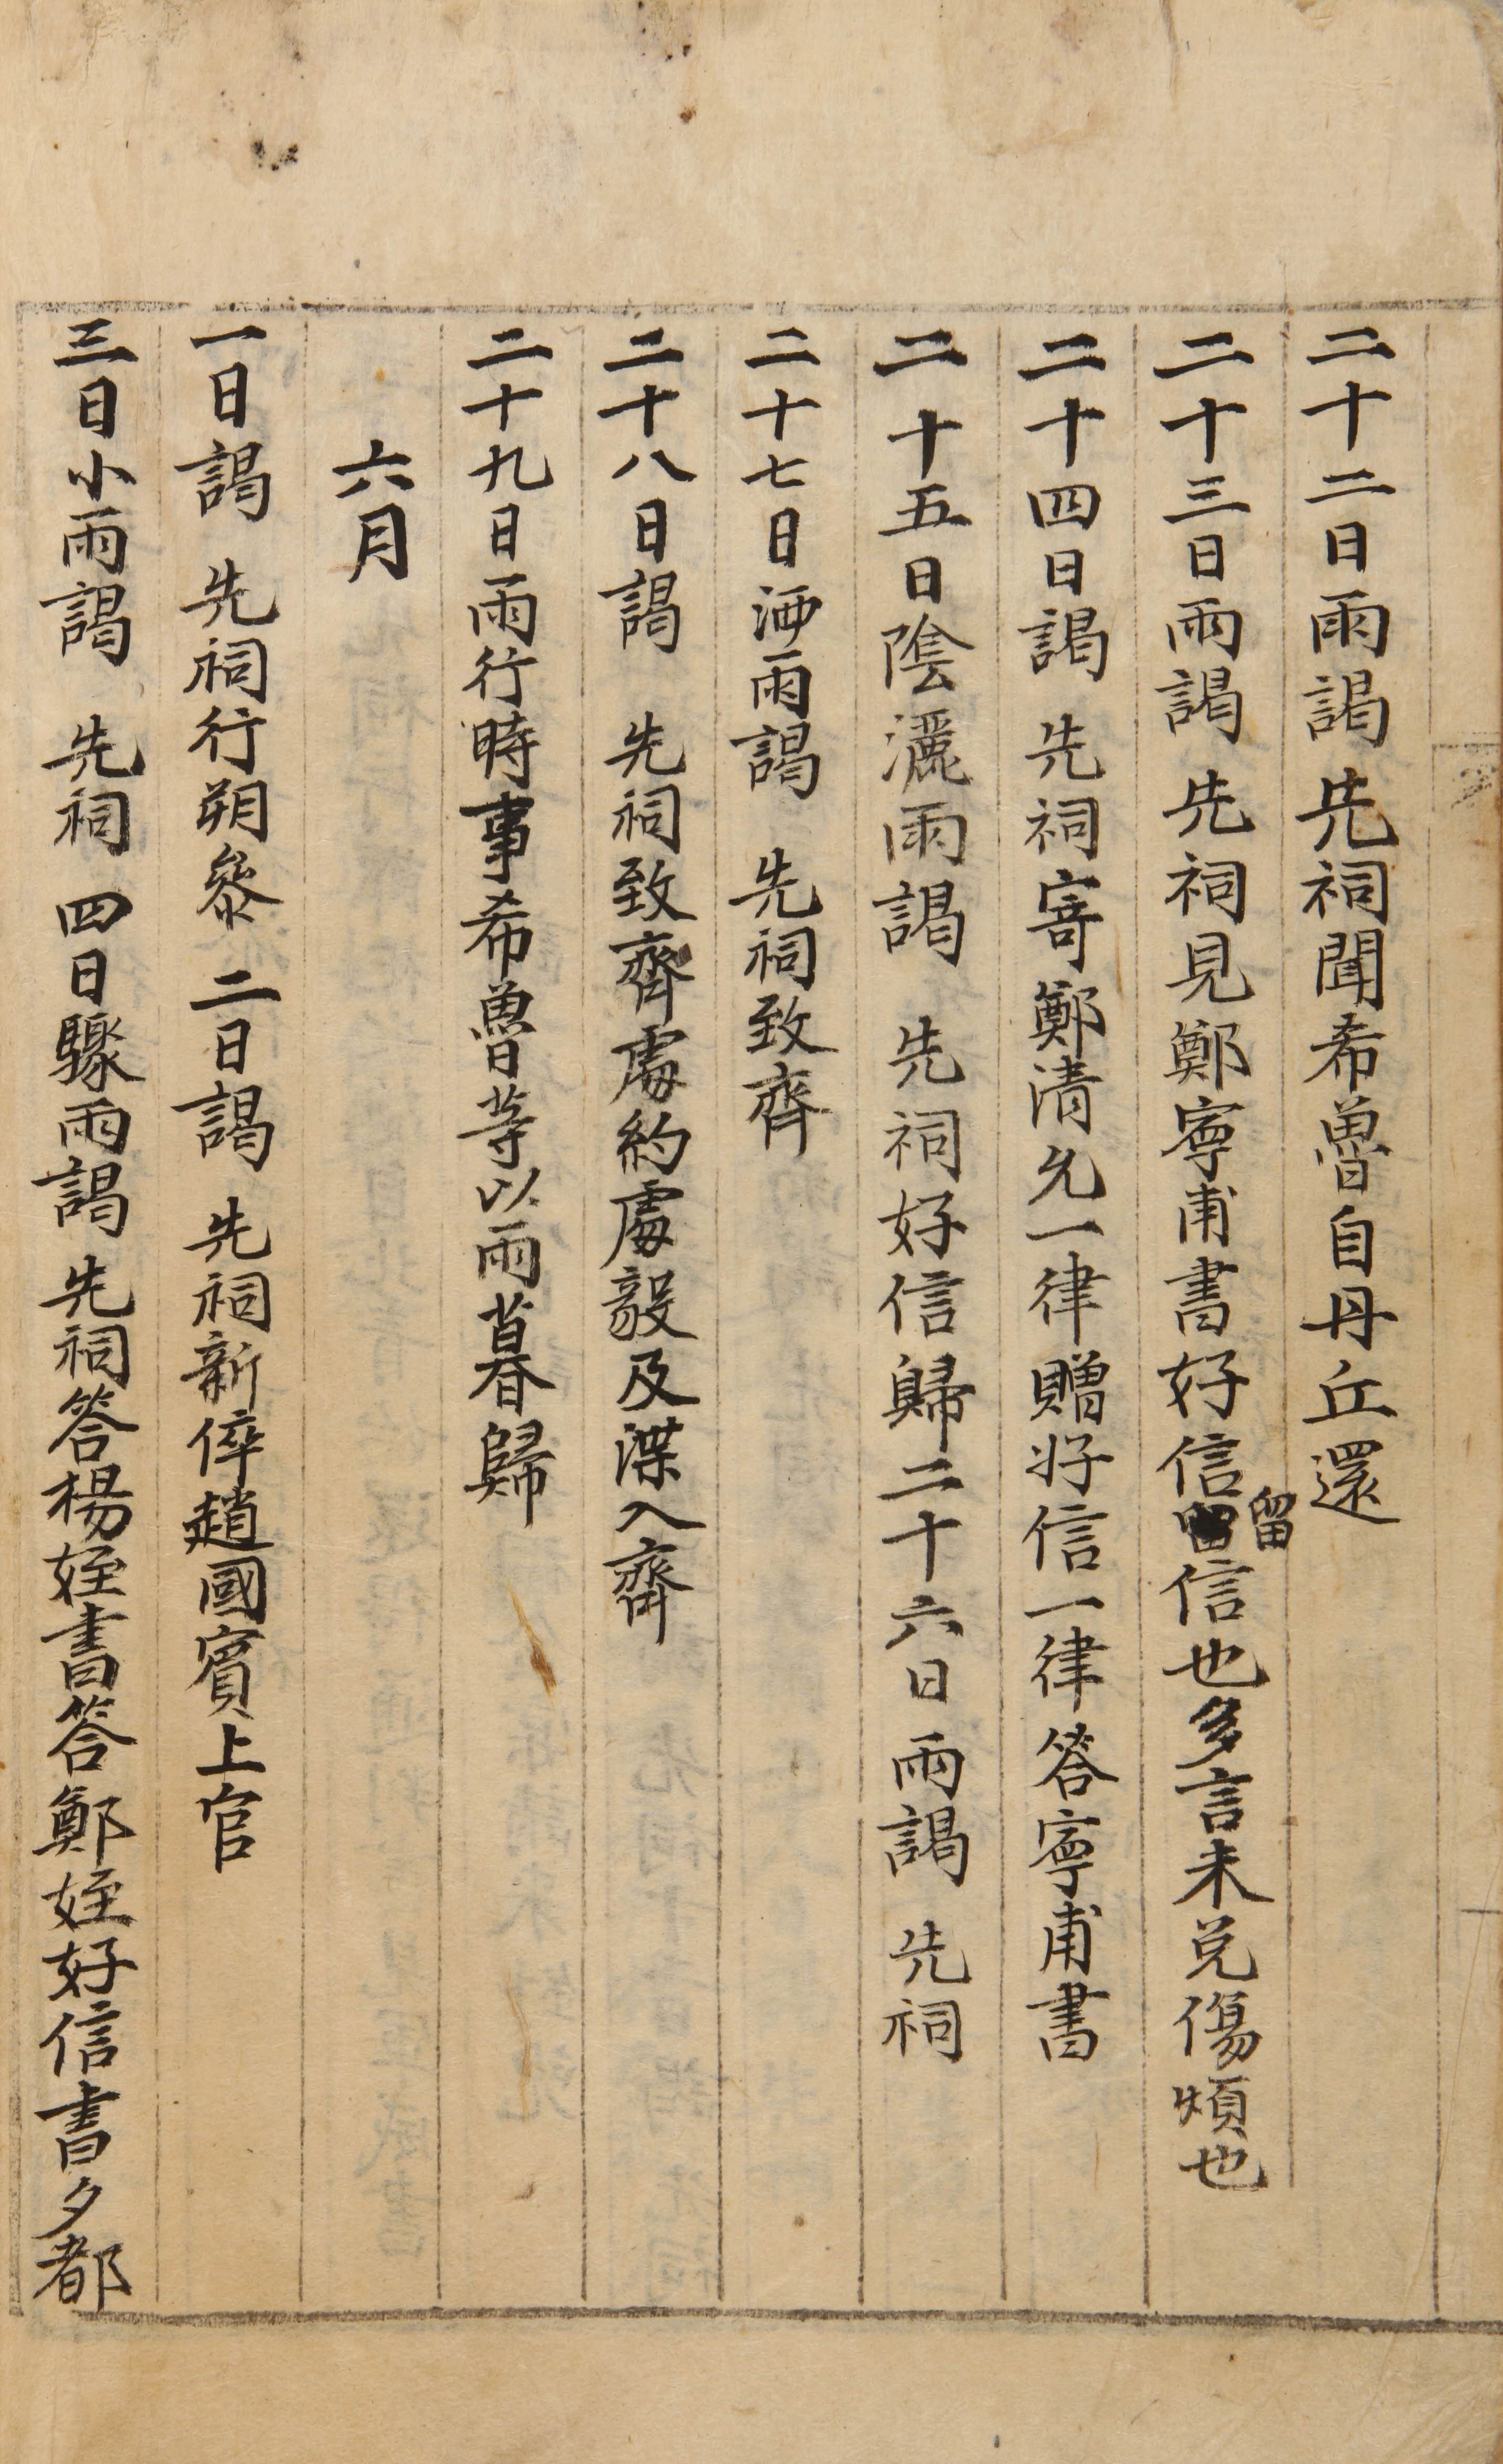 二十二日雨謁 先祠聞希魯自丹丘還
二十三日雨謁 先祠見鄭寧甫書好信留信也多言未免傷煩也
二十四日謁 先祠寄鄭清允一律贈好信一律答寧甫書
二十五日陰灑雨謁 先祠好信歸二十六日雨謁 先祠
二十七日洒雨謁 先祠致齊
二十八日謁 先祠致齊處約處毅及渫入齊
二十九日雨行時事希魯等以雨暮歸
六月
一日謁 先祠行朔參 二日謁 先祠新倅趙國賓上官
三日小雨謁 先祠 四日驟雨謁 先祠答楊姪書答鄭姪好信書夕都